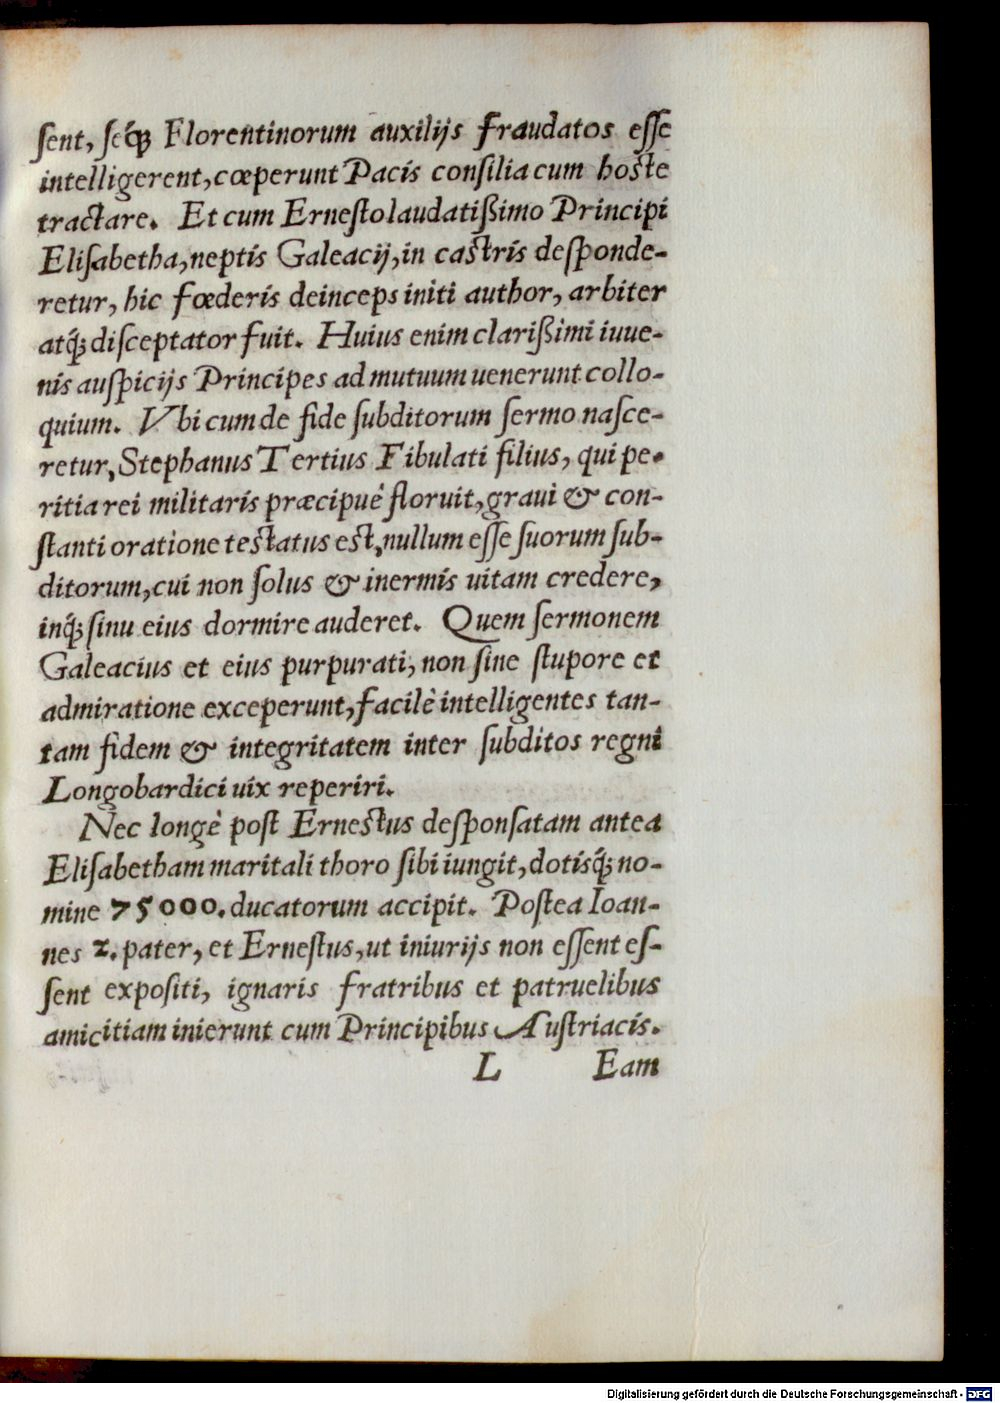 ſent, ſeq́ꝫ Florentinorum auxilijs fraudatos eſſe
intelligerent, cœperunt Pacis conſilia cum hoſte
tractare. Et cum Erneſto laudatißimo Principi
Eliſabetha, neptis Galeacij, in caſtris deſponde-
retur, hic fœderis deinceps initi author, arbiter
atq́ꝫ diſceptator fuit. Huius enim clarißimi iuue-
nis auſpicijs Principes ad mutuum uenerunt collo-
quium. Vbi cum de fide ſubditorum ſermo naſce-
retur, Stephanus Tertius Fibulati filius, qui pe-
ritia rei militaris præcipuè floruit, graui & con-
ſtanti oratione teſtatus eſt, nullum eſſe ſuorum ſub-
ditorum, cui non ſolus & inermis uitam credere,
inq́ꝫ ſinu eius dormire auderet. Quem ſermonem
Galeacius et eius purpurati, non ſine ſtupore et
admiratione exceperunt, facilè intelligentes tan-
tam fidem & integritatem inter ſubditos regni
Longobardici uix reperiri.
Nec longè poſt Erneſtus deſponſatam antea
Eliſabetham maritali thoro ſibi iungit, dotisq́ꝫ no-
mine 75000. ducatorum accipit. Poſtea Ioan-
nes 2. pater, et Erneſtus, ut iniurijs non eſſent eſ-
ſent expoſiti, ignaris fratribus et patruelibus
amicitiam inierunt cum Principibus Auſtriacis.
L Eam
Digitalisierung gefördert durch die Deutsche Forschungsgemeinschaft - DFG